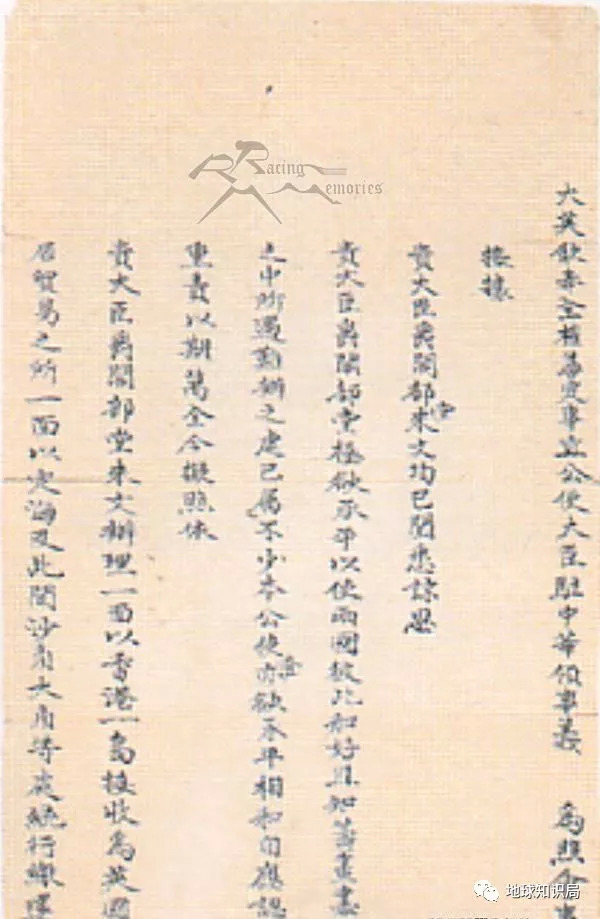 大英欽奉全權善定事宜公使大臣駐中華領事義 為照會事
接據
貴大臣爵閣部堂來文均已閱悉諒思
貴大臣爵閣部堂極欲承平以使兩國彼此和好且知籌畫
之中所遇難辦之處已屬不少本公使亦欲承平相和自應認
重責以期萬全今擬照依
貴大臣爵閣部堂來文辦理一面以香港一島接收為英國
居貿易之所一面以定海及此間沙角大角等處統行繳還
Racing
Memories
地球知识局